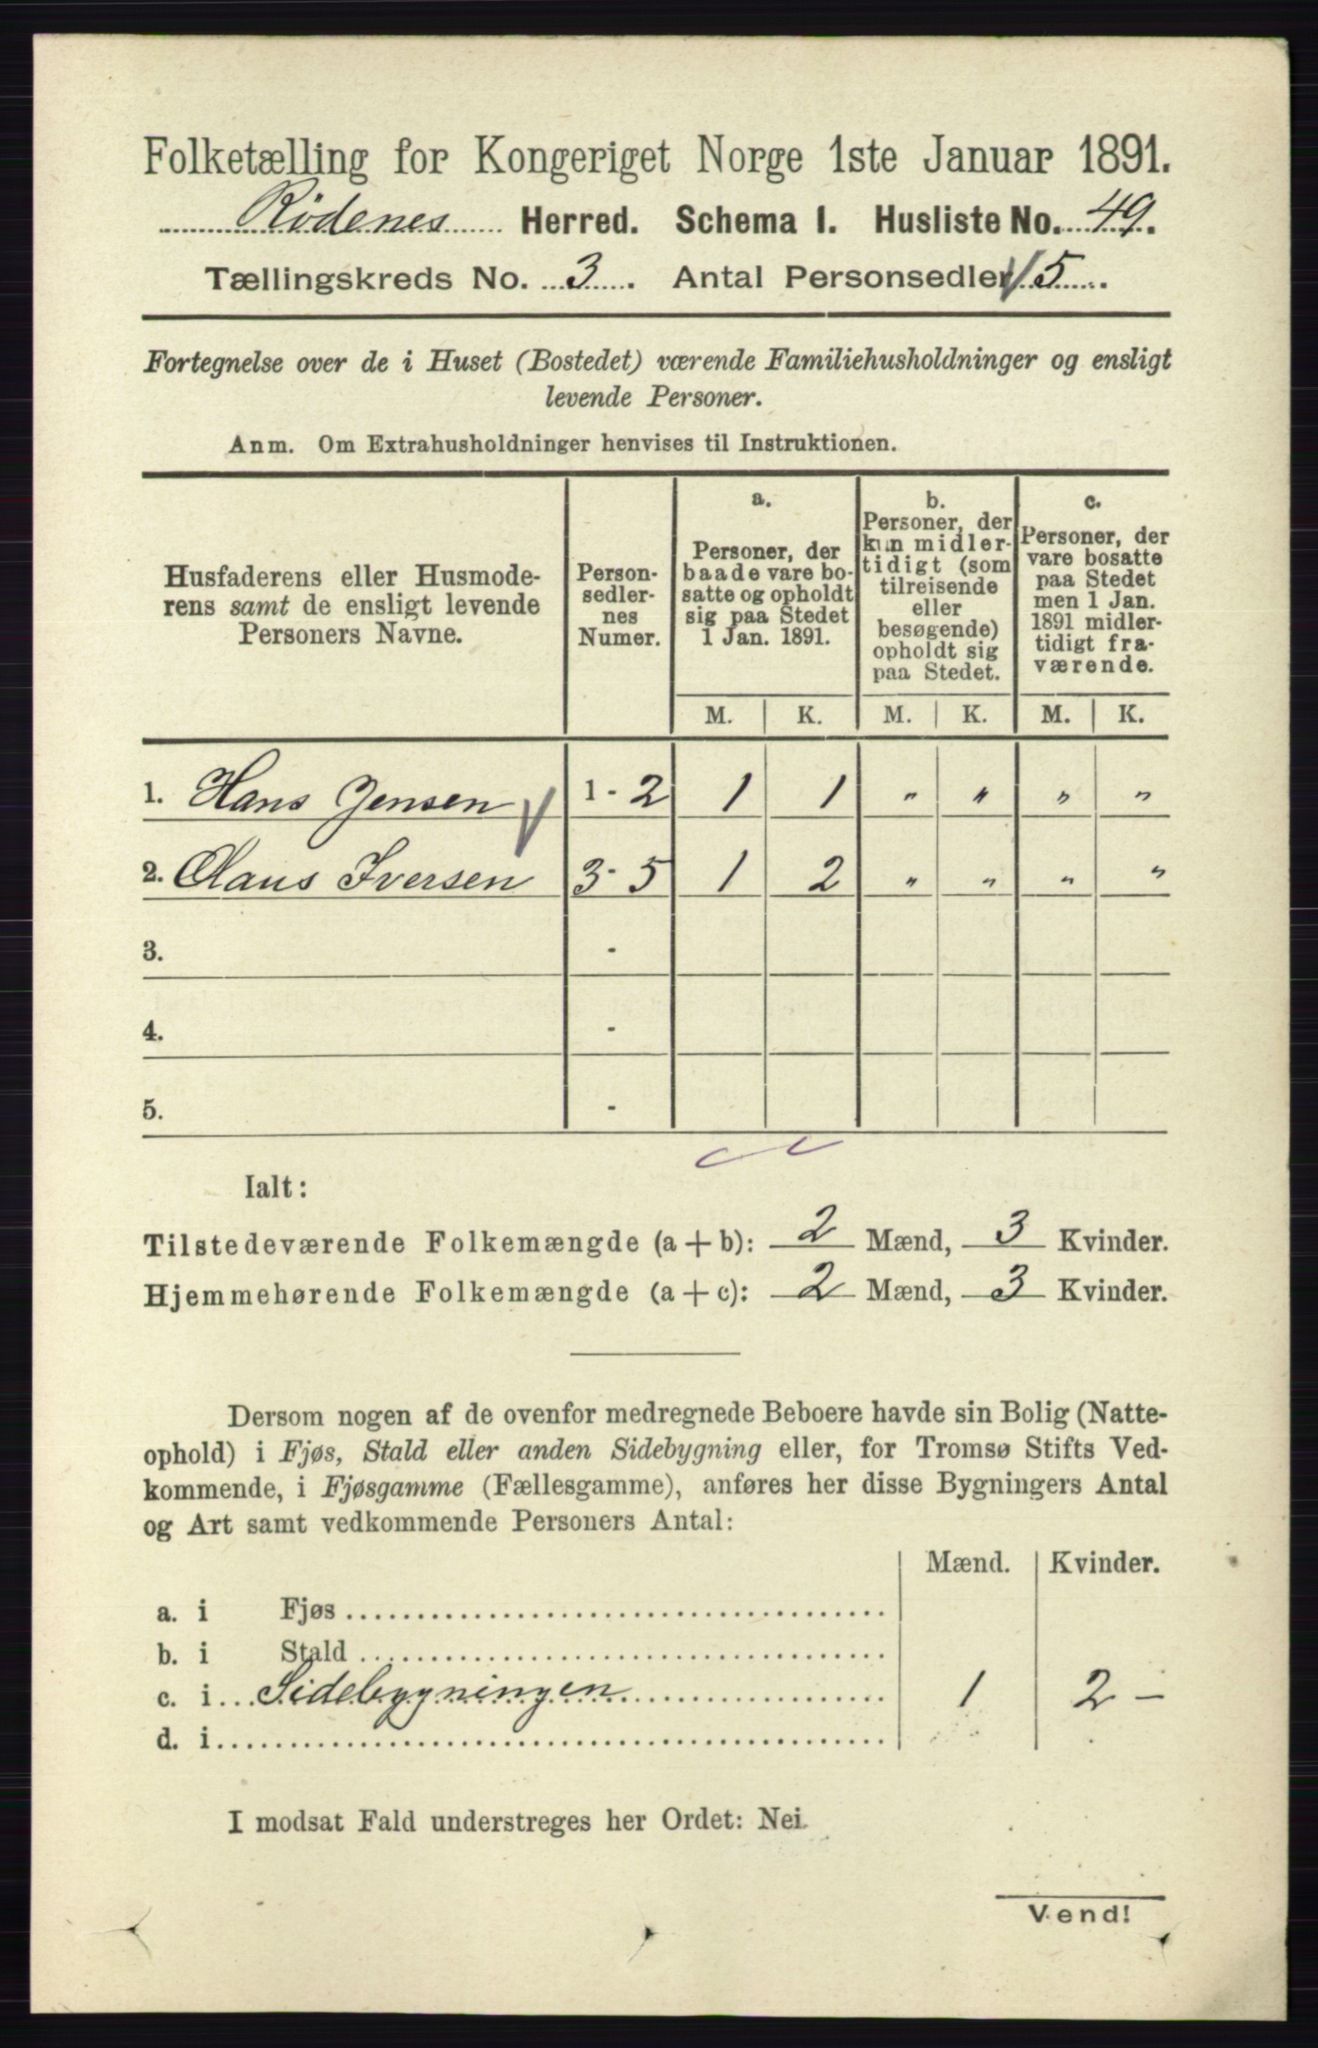 Folketælling for Kongeriget Norge 1ste Januar 1891.
Rödenes Herred. Schema I. Husliste No. 49.
Tællingskreds No. 3. Antal Personsedler 5.
Fortegnelse over de i Huset (Bostedet) værende Familiehusholdninger og ensligt
levende Personer.
Anm. Om Extrahusholdninger henvises til Instruktionen.
Husfaderens eller Husmode-
rens samt de ensligt levende
Personers Navne.
Person-
sedler-
nes
Numer.
a.
Personer, der
baade vare bo-
satte og opholdt
sig paa Stedet
1 Jan. 1891.
b.
Personer, der
kun midler-
tidigt (som
tilreisende
eller
besøgende)
opholdt sig
paa Stedet.
c.
Personer, der
vare bosatte
paa Stedet
men 1 Jan.
1891 midler-
tidigt fra-
værende.
M. K. M. K. M. K.
1. Hans Jensen 1 - 2 1 1 " " " "
2. Claus Iversen 3 - 5 1 2 " " " "
3. -
4. -
5. -
Ialt:
Tilstedeværende Folkemængde (a + b): 2 Mænd, 3 Kvinder.
Hjemmehørende Folkemængde (a + c): 2 Mænd, 3 Kvinder.
Dersom nogen af de ovenfor medregnede Beboere havde sin Bolig (Natte-
ophold) i Fjøs, Stald eller anden Sidebygning eller, for Tromsø Stifts Ved-
kommende, i Fjøsgamme (Fællesgamme), anføres her disse Bygningers Antal
og Art samt vedkommende Personers Antal:
Mænd. Kvinder.
a. i Fjøs
b. i Stald
c. i Sidebygningen 1 2 -
d. i
I modsat Fald understreges her Ordet: Nei.
Vend!